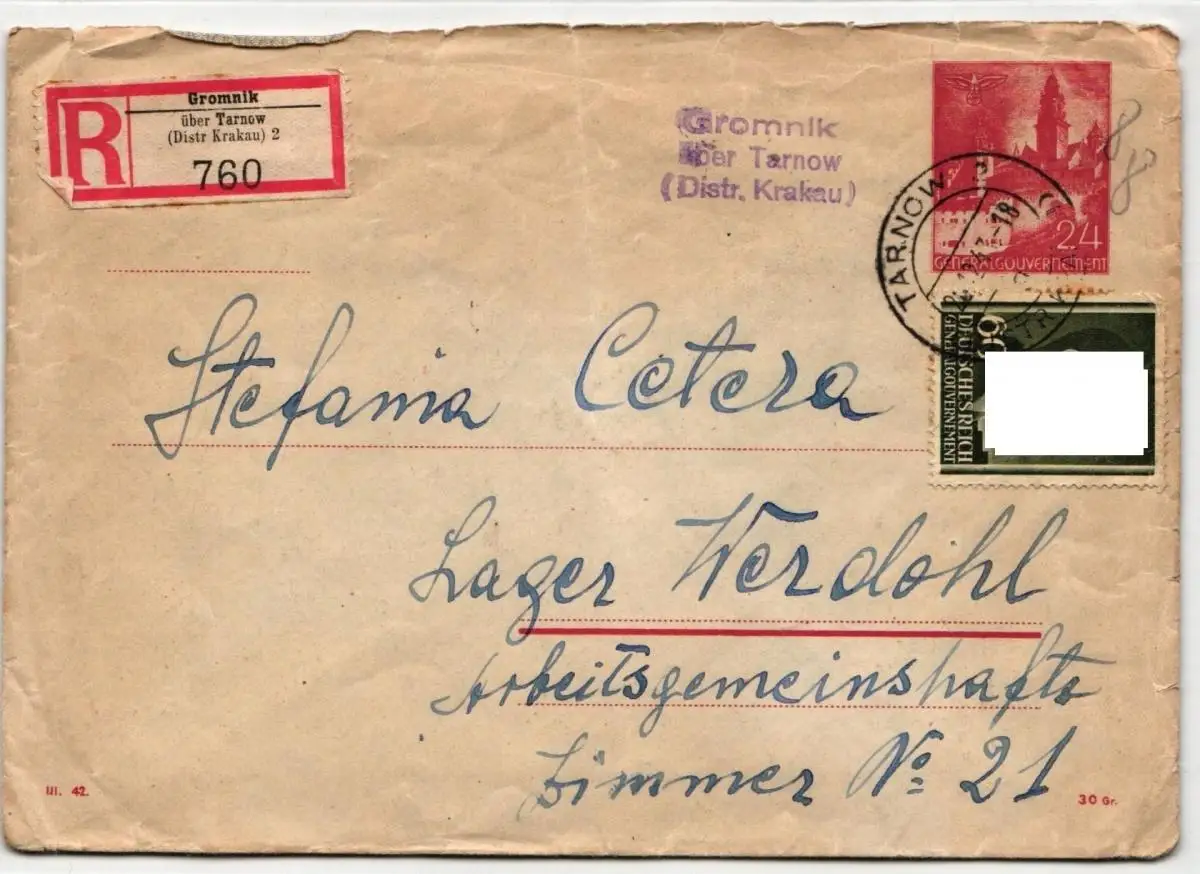 Gromnik
über Tarnow
(Distr Krakau) 2
R
760
Gromnik
über Tarnow
(Distr. Krakau)
24
GENERALGOUVERNEMENT
TARNOW
60
DEUTSCHES REICH
GENERALGOUVERNEMENT
8
8
Stefania Cetera
Lager Werdohl
Arbeitsgemeinshafts
Zimmer No 21
III. 42.
30 Gr.